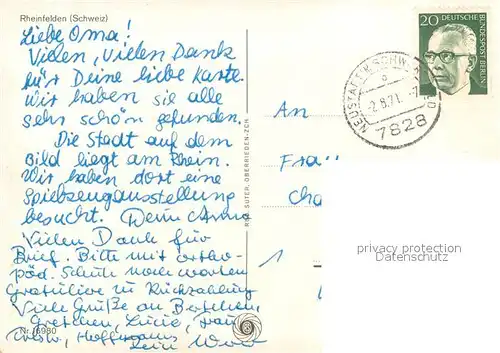 Rheinfelden (Schweiz)
Liebe Oma!
Vielen, Vielen Dank
für Deine liebe Karte.
Wir haben sie alle
sehr schön gefunden.
Die Stadt auf dem
Bild liegt am Rhein.
Wir haben dort eine
Spielzeugausstellung
besucht. Deine
Vielen Dank für
Brief. Bitte mit ortho-
päd. Schuhe noch warten
Gratuliere zu Rückzahlung
Viele Grüße an
Gretchen, Lucie, Frau
Hoffmanns
Dein
Nr. 6980
RUD. SUTER, OBERRIEDEN-ZCH
An
Frau
Cha
1
20 DEUTSCHE
BUNDESPOST BERLIN
NEUSTADT
-2.8.71. -7
7828
privacy protection
DELCAMPE